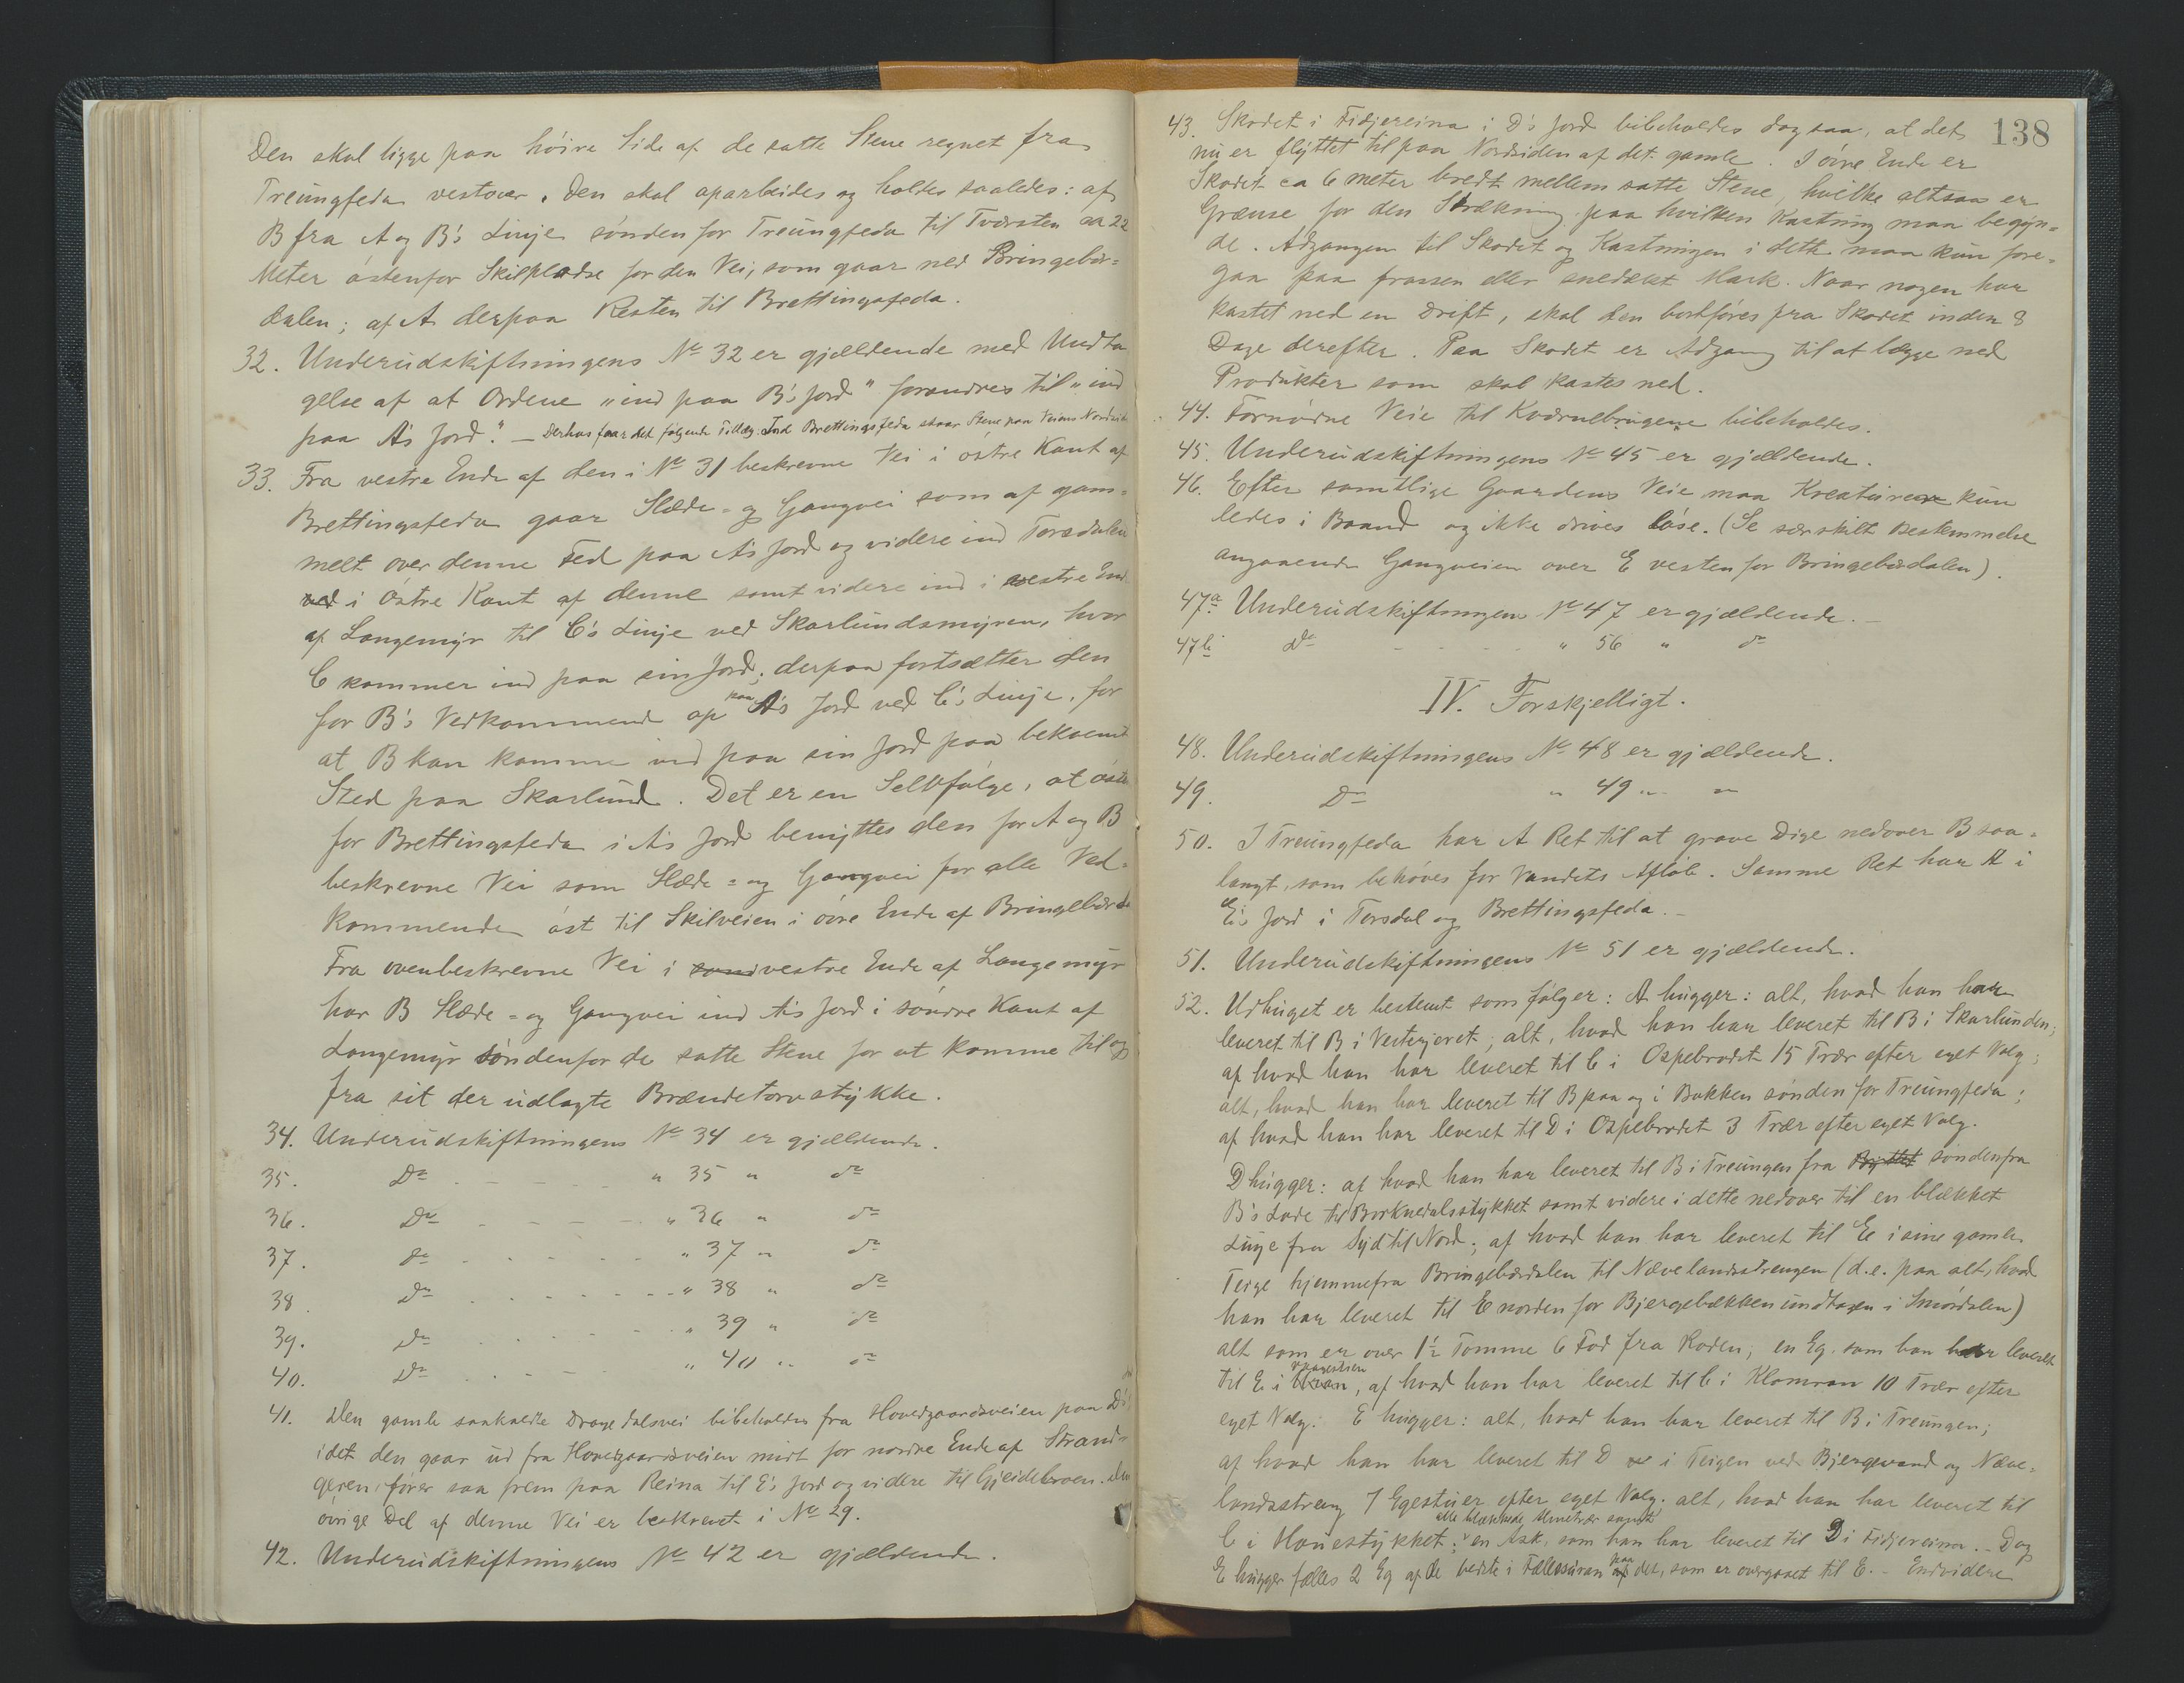 Den skal ligge paa höire Side af de satte Stene regnet fra
Treungfeda vestover. Den skal oparbeides og holdes saaledes: af
B fra A og B's Linje sönden for Treungfeda til Tværsten ca 22
Meter östenfor Skilpladse for den Vei, som gaar ned Bringebær=
dalen; af A derpaa Resten til Brettingsfeda.
32. Underudskiftningens No 32 er gjældende med Undta
gelse af at Ordene "ind paa B's Jord" forandres til "ind
paa A's Jord." — Derhos faar det fölgende Tillæg: Ind Brettingsfeda staar Stene paa Veiens Nordside
33. Fra vestre Ende af den i No 31 beskrevne Vei i östre Kant af
Brettingsfeda gaar Slæde= og Gangvei som af gam=
melt over denne Fed paa A's Jord og videre ind Torsdalen
ved i Östre Kant af denne samt videre ind i vestre Ende
af Langemyr til C's Linje ved Skarlundsmyren, hvor
C kommer ind paa sin Jord; derpaa fortsætter den
for B's Vedkommende op paa A's Jord ved C's Linje, for
at B kan komme ind paa sin Jord paa bekvemt
Sted paa Skarlund. Det er en Selvfölge, at östen
for Brettingsfeda i A's Jord benyttes den for A og B
beskrevne Vei som Slæde= og Gangvei for alle Ved=
kommende öst til Skilveien i övre Ende af Bringebærda
Fra ovenbeskrevne Vei i vestre Ende af Langemyr
har B Slæde= og Gangvei ind A's Jord i söndre Kant af
Langemyr söndenfor de satte Stene for at komme til og
fra sit der udlagte Brændetorvstykke.
34. Underudskiftningens No 34 er gjældende.
35. Do - - - - - " 35 " do
36. Do - - - - - " 36 " do
37. do - - - - - " 37 " do
38. Do - - - - - " 38 " do
39. Do - - - - - " 39 " do
40. Do - - - - " 40 " do
41. Den gamle saakaldte Dragedalsvei bibeholdes fra Hovedgaardsveien paa D's
idet den gaar ud fra Hovedgaardsveien midt for nordre Ende af Strand=
geren, förer saa frem paa Reina til E's Jord og videre til Gjeidebroen. Den
övrige Del af denne Vei er beskrevet i No 29.
42. Underudskiftningens No 42 er gjældende.
138
43. Skodet i Fidjereina i D's Jord bibeholdes dog saa, at det
nu er flyttet til paa Nordsiden af det gamle. I övre Ende er
Skodet ca 6 meter bredt mellem satte Stene, hvilke altsaa er
Grænse for den Strækning paa hvilken Kastning maa begyn=
de. Adgangen til Skodet og Kastningen i dette maa kun fore=
gaa paa frossen eller snedækt Mark. Naar nogen har
kastet ned en Drift, skal den bortföres fra Skodet inden 8
Dage derefter. Paa Skodet er Adgang til at lægge ned
Produkter som skal kastes ned.
44. Fornödne Veie til Kværnebrugene bibeholdes.
45. Underudskiftningens No 45 er gjældende.
46. Efter samtlige Gaardens Veie maa Kreaturene kun
ledes i Baand og ikke drives löse. (Se særskilt Bestemmelse
angaaende Gangveien over E vesten for Bringebærdalen).
47a. Underudskiftningens No 47 er gjældende. —
47b. Do - - - - " 56 " do
IV. Forskjelligt.
48. Underudskiftningens No 48 er gjældende.
49. Do " 49 " "
50. I Treungfeda har A Ret til at grave Dige nedover B saa=
langt, som behöves for Vandets Aflöb. Samme Ret har A i
E's Jord i Torsdal og Brettingsfeda. —
51. Underudskiftningens No 51 er gjældende.
52. Udhuget er bestemt som fölger: A hugger: alt, hvad han har
leveret til B i Vestergjeret; alt, hvad han har leveret til B i Skarlunden;
af hvad han har leveret til C i Ospebrodet 15 Trær efter eget Valg;
alt, hvad han har leveret til B paa og i Bakken sönden for Treungfeda;
af hvad han har leveret til D i Ospebrodet 3 Trær efter eget Valg.
D hugger: af hvad han har leveret til B i Treungen fra Byttet söndenfra
B's Lade til Birknedalsstykket samt videre i dette nedover til en blækket
Linje fra Syd til Nord; af hvad han har leveret til E i sine gamle
Teige hjemmefra Bringebærdalen til Nævelandsstrengen (d.e. paa alt, hvad
han har leveret til E norden for Bjergebækken undtagen i Smördalen)
alt som er over 1½ Tomme 6 Fod fra Roden; en Eg som han har leveret
til E i , af hvad han har leveret til C i Klomran 10 Trær efter
eget Valg. E hugger: alt, hvad han har leveret til B i Treungen;
af hvad han har leveret til D i Teigen ved Bjergevand og Næve=
landsstreng 7 Egestuer efter eget Valg; alt, hvad han har leveret til
alle blækkede Almetrær samt
C i Honestykket; en Ask, som han har leveret til D i Fidjereina. — D og
E hugger fælles 2 Eg af de bedste i Fællessuran paa det, som er overgaaet til E. — Endvidere